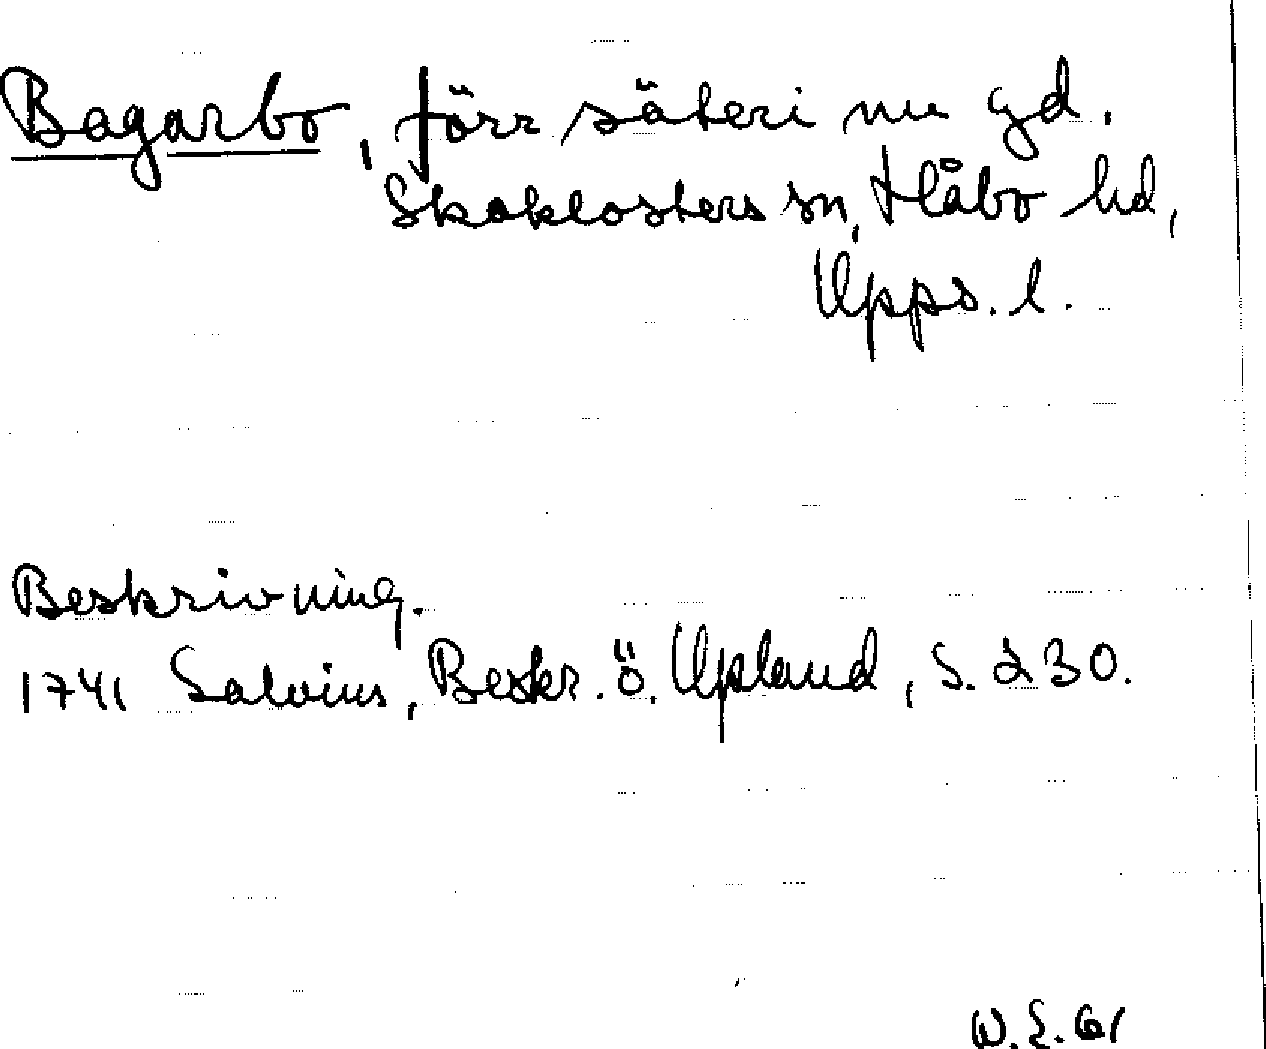 Bagarbo, förr säteri nu gd.
Skoklosters sn, Håbo hd,
Upps. l.
Beskrivning.
1741 Salvius, Beskr. ö. Upland, S. 230.
W. E. 61